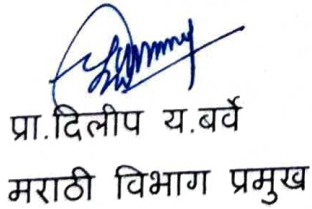 प्रा.दिलीप य.बर्वे
मराठी विभाग प्रमुख